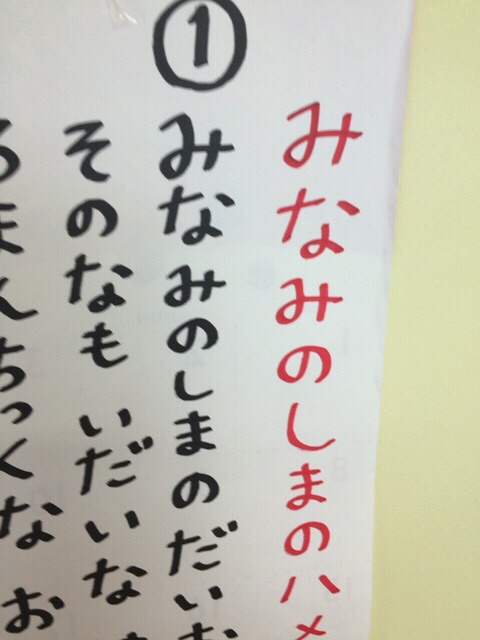 みなみのしまのハメ
①
みなみのしまのだいお
そのなも いだいな
ろまんちっくな お